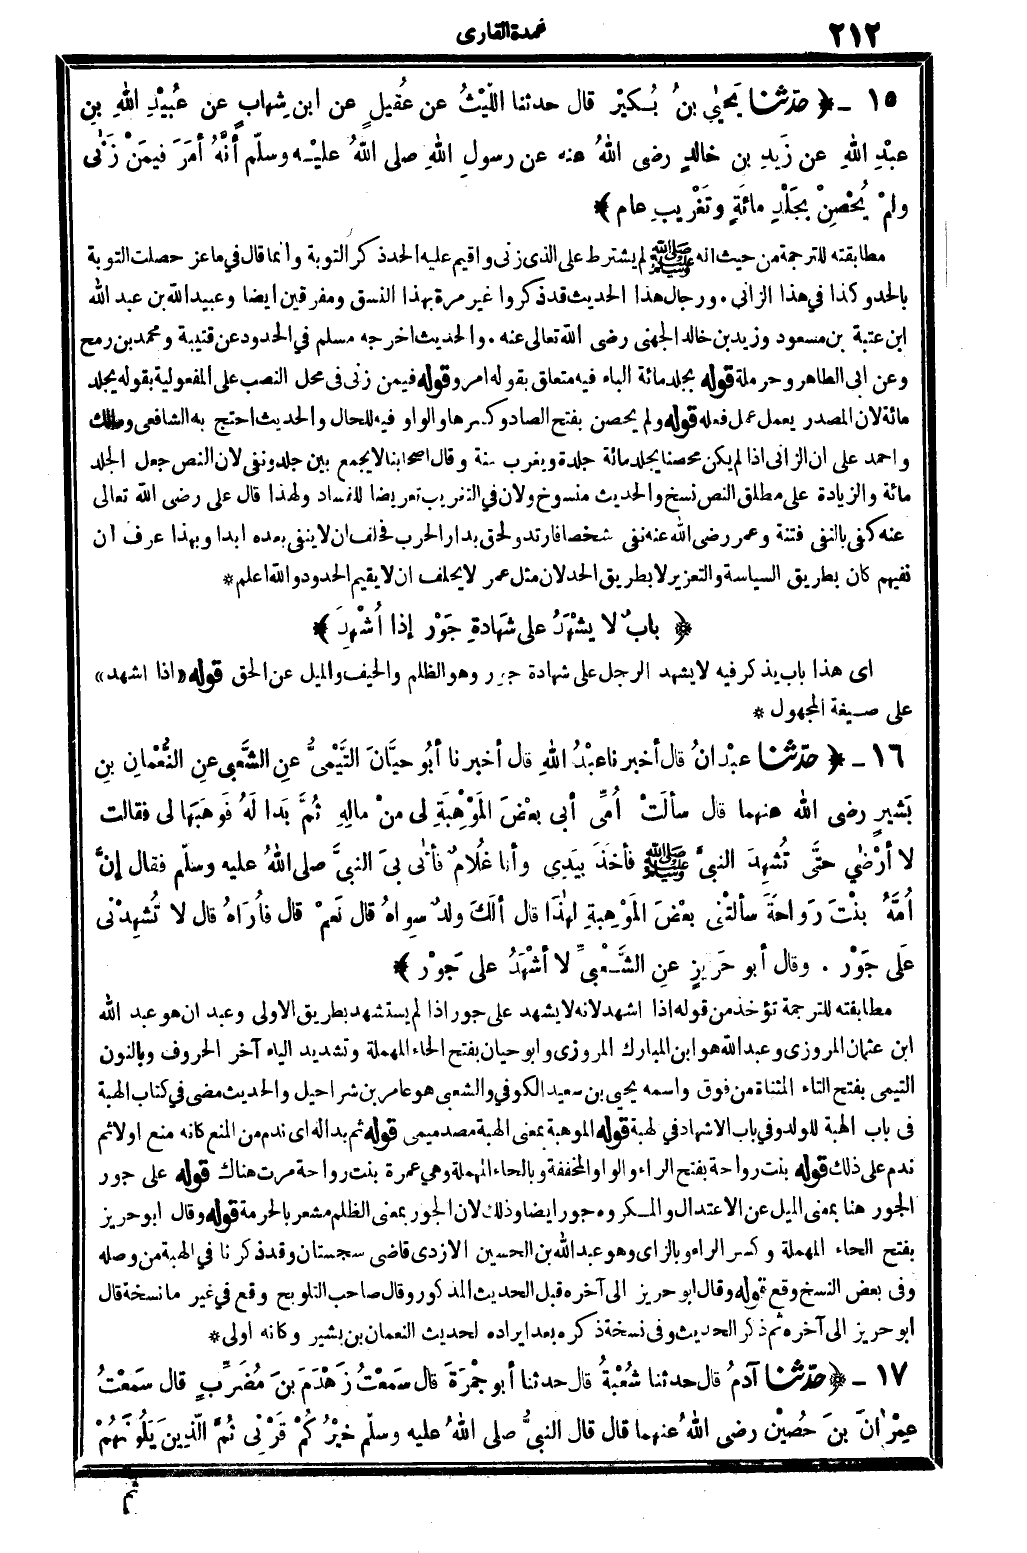 ٢١٢
عمدة القارى
١٥ ـ ﴿ حدّثنا يَحْيىٰ بنُ بُكَيْرٍ قال حدثنا اللَّيْثُ عن عُقَيلٍ عن ابنِ شِهابٍ عن عُبَيْدِ اللهِ بنِ
عبْدِ اللهِ عن زَيدِ بن خالدٍ رضى اللهُ عنه عن رسولِ اللهِ صلى اللهُ عليْه وسلّم أنَّهُ أمَرَ فيمَنْ زَنٰى
ولمْ يُحْصِنْ بجَلْدِ مائَةٍ وتَغْرِيبِ عام ﴾
مطابقته للترجمة من حيث انه ﷺ لم يشترط على الذى زنى واقيم عليه الحد ذكر التوبة وانما قال في ماعز حصلت التوبة
بالحد وكذا في هذا الزانى . ورجال هذا الحديث قد ذكروا غير مرة بهذا النسق ومفرقين ايضا وعبيد الله بن عبد الله
ابن عتبة بن مسعود وزيد بن خالد الجهنى رضى الله تعالى عنه . والحديث اخرجه مسلم في الحدود عن قتيبة ومحمد بن رمح
وعن ابى الطاهر وحرملة قوله بجلد مائة الباء فيه متعلق بقوله امر وقوله فيمن زنى فى محل النصب على المفعولية بقوله بجلد
مائة لان المصدر يعمل عمل فعله قوله ولم يحصن بفتح الصاد وكسرها والواو فيه للحال والحديث احتج به الشافعى ومالك
واحمد على ان الزانى اذا لم يكن محصنا يجلد مائة جلدة ويغرب سنة وقال اصحابنا لا يجمع بين جلد ونفى لان النص جعل الجلد
مائة والزيادة على مطلق النص نسخ والحديث منسوخ ولان في التغريب تعريضا للفساد ولهذا قال على رضى الله تعالى
عنه كفى بالنفى فتنة وعمر رضى الله عنه نفى شخصا فارتد ولحق بدار الحرب فحلف ان لا ينفى بعده ابدا وبهذا عرف ان
نفيهم كان بطريق السياسة والتعزير لا بطريق الحد لان مثل عمر لا يحلف ان لا يقيم الحدود والله اعلم *
﴿ بابٌ لا يشْهَدُ على شَهادةِ جَوْرٍ إذا أُشْهِدَ ﴾
اى هذا باب يذكر فيه لا يشهد الرجل على شهادة جور وهو الظلم والحيف والميل عن الحق قوله «اذا اشهد»
على صيغة المجهول *
١٦ ـ ﴿ حدّثنا عبْدانُ قال أخبرنا عبْدُ اللهِ قال أخبرنا أبُو حيَّانَ التَّيْمِىُّ عنِ الشَّعْبِى عنِ النُّعْمانِ بنِ
بَشيرٍ رضى الله عنهما قال سألَتْ أُمِّى أبى بعْضَ المَوْهِبَةِ لى منْ مالِهِ ثُمَّ بَدا لَهُ فَوهَبَها لى فقالت
لا أرْضٰى حتَّى تُشْهِدَ النبىَّ ﷺ فأخَذَ بيَدِى وأنا غُلامٌ فأتٰى بىَ النبىَّ صلى اللهُ عليه وسلّم فقال إنَّ
أُمَّهُ بنْتَ رَوَاحةَ سألَتْنى بعْضَ المَوْهِبةِ لهٰذَا قال ألَكَ ولدٌ سِواهُ قال نَعَمْ قال فأُرَاهُ قال لا تُشْهِدْنى
عَلَى جَوْرٍ . وقال أبو حَرِيزٍ عنِ الشَّعْبىِّ لا أشْهَدُ على جَوْرٍ ﴾
مطابقته للترجمة تؤخذ من قوله اذا اشهد لانه لا يشهد على جور اذا لم يستشهد بطريق الاولى وعبدان هو عبد الله
ابن عثمان المروزى وعبد الله هو ابن المبارك المروزى وابو حيان بفتح الحاء المهملة وتشديد الياء آخر الحروف وبالنون
التيمى بفتح التاء المثناة من فوق واسمه يحيى بن سعيد الكوفي والشعبى هو عامر بن شراحيل والحديث مضى في كتاب الهبة
فى باب الهبة للولد وفي باب الاشهاد في لهبة قوله الموهبة بمعنى الهبة مصدر ميمى قوله ثم بدا له اى ندم من المنع كانه منع اولا ثم
ندم على ذلك قوله بنت رواحة بفتح الراء والواو المخففة وبالحاء المهملة وهى عمرة بنت رواحة مرت هناك قوله على جور
الجور هنا بمعنى الميل عن الاعتدال والمكروه جور ايضا وذلك لان الجور بمعنى الظلم مشعر بالحرمة قوله وقال ابو حريز
بفتح الحاء المهملة وكسر الراء وبالزاى وهو عبد الله بن الحسين الازدى قاضى سجستان وقد ذكرنا في الهبة من وصله
وفى بعض النسخ وقع قوله وقال ابو حريز الى آخره قبل الحديث المذكور وقال صاحب التلويح وقع في غير ما نسخة قال
ابو حريز الى آخره ثم ذكر الحديث وفى نسخة ذكره بعد ايراده لحديث النعمان بن بشير وكانه اولى *
١٧ ـ ﴿ حدّثنا آدمُ قال حدثنا شُعْبةُ قال حدثنا أبو جَمْرَةَ قال سَمعْتُ زَهْدَمَ بنَ مُضَرِّبٍ قال سَمعْتُ
عِمْرانَ بنَ حُصَيْنٍ رضى اللهُ عنهما قال قال النبىُّ صلى اللهُ عليه وسلّم خيْرُكُمْ قَرْنى ثُمَّ الَّذِينَ يَلُونَهُمْ
ثم